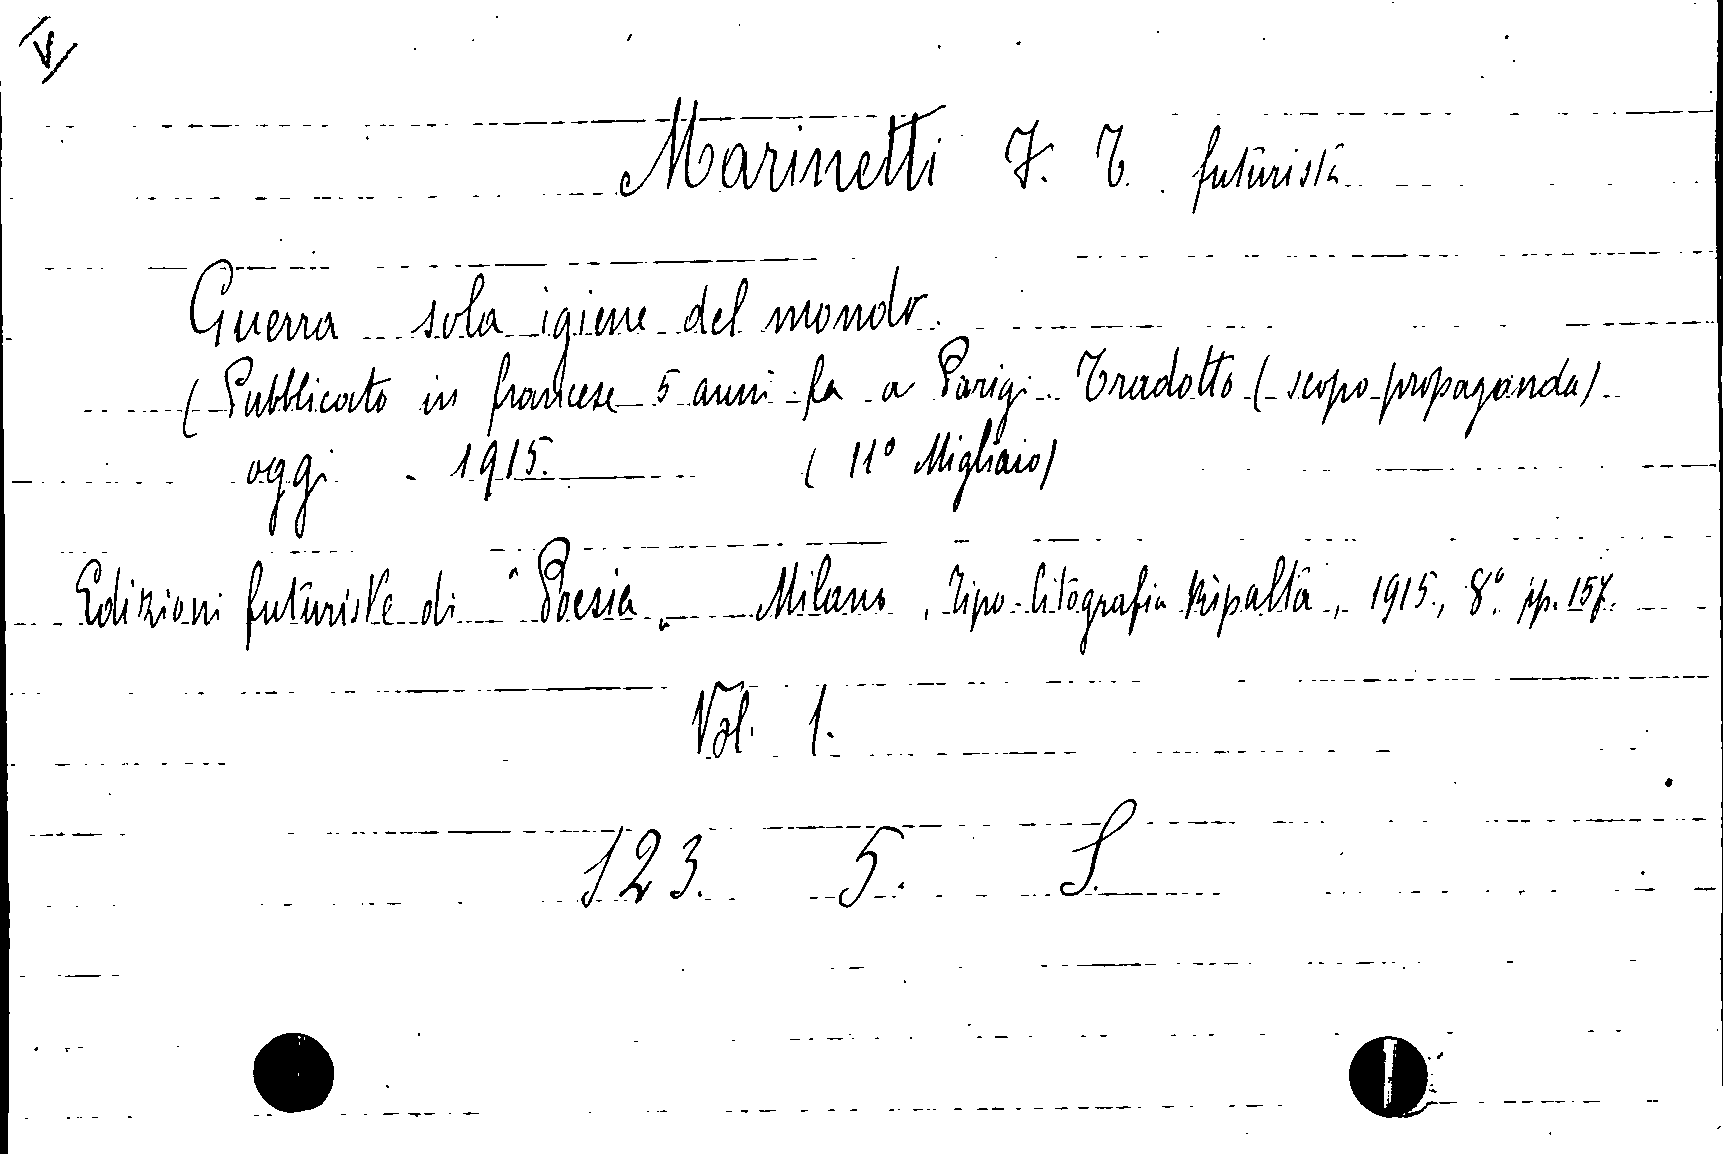 V
Marinetti F. T. futurista
Guerra sola igiene del mondo.
(Pubblicato in francese 5 anni fa a Parigi. Tradotto (scopo propaganda)
oggi - 1915. (11° Migliaio)
Edizioni futuriste di "Poesia„ Milano, Tipo-litografia Ripalta, 1915, 8° pp. 157.
Vol. 1.
123. 5. S.